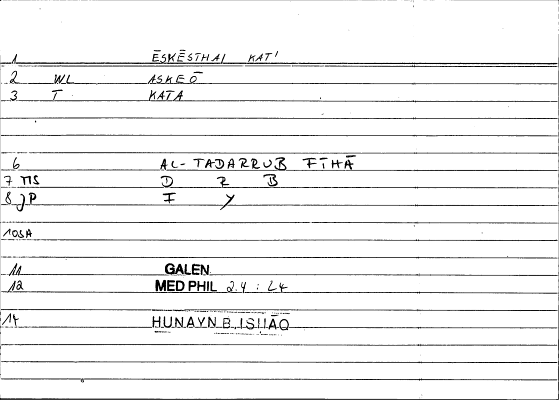 1 ĒSKĒSTHAI KAT'
2 WL ASKEŌ
3 T KATA
6 AL-TADARRUB FĪHĀ
7 MS D R B
8 JP F Y
10SA
11 GALEN
12 MED PHIL 2.4 : 24
14 HUNAYN B. ISHĀQ